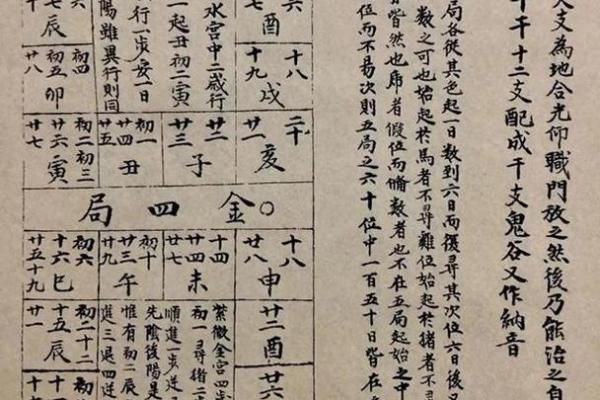 支為地合光仰職門放之然後乃能治之自
干十二支配成干支鬼谷又作納音
局各從其色起一日数到六日而復尋其次位六日後又
数之可也始起於馬者不尋雞位始起於猪者不尋
皆然也虎者假位而脩数者也不在五局起始之中
位而不易次則五局之六十位中一百五十日皆在
酉
十八
戌
十九
二十
亥
廿一
水宮中二歲行
一起丑初二寅
行一步安一日
陽雖異行則同
廿二
子
廿三
初一
廿四丑
廿五
初二初三
廿六寅
廿七
初四
初五卯
廿八
辰
○金四局
十八
申
廿八
廿二酉
廿六
十四
廿四未
廿七
初十
廿三午
初六
十六巳
廿五十九
紫微金宮四歲
初一尋猪二
順進一步逆
先陰後陽是
惟有初二辰
進三退四逆
初二十二
十五辰
廿一